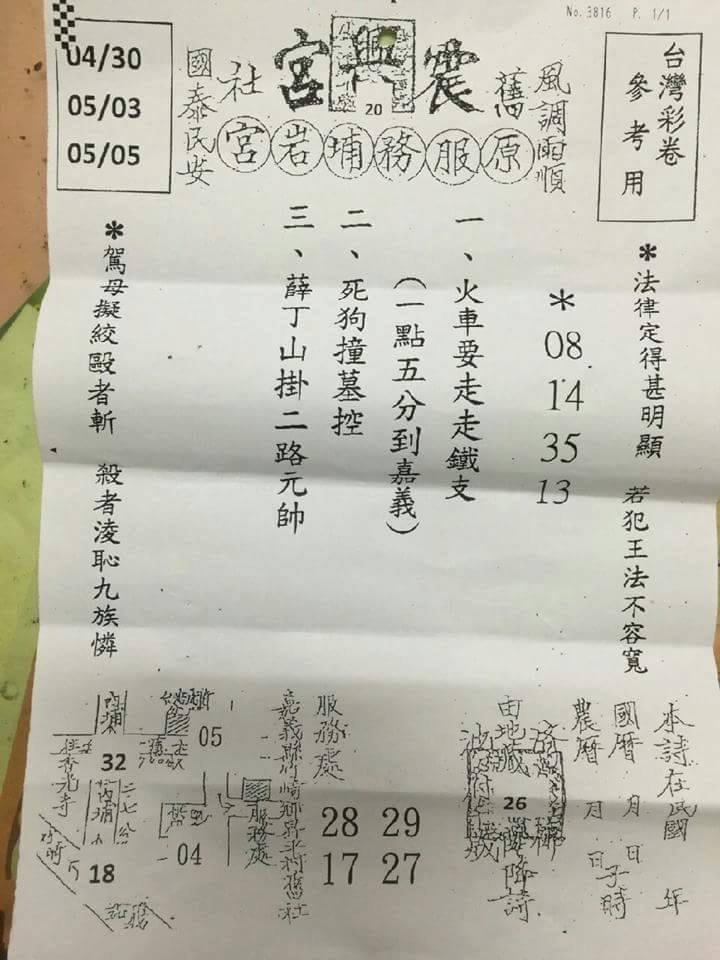 No. 3816 P. 1/1
台灣彩卷
參考用
風調雨順
震興宮
20
舊社
原服務埔岩宮
國泰民安
04/30
05/03
05/05
*法律定得甚明顯 若犯王法不容寬
*
08
14
35
13
一、火車要走走鐵支
(一點五分到嘉義)
二、死狗撞墓控
三、薛丁山掛二路元帥
*駕母擬絞毆者斬 殺者淩恥九族憐
本詩在民國 年
國曆 月 日
農曆 月 日子時
26
由地藏
降詩
服務處
28 29
17 27
嘉義縣竹崎鄉
舊社
服務處
05
04
內埔
32
18